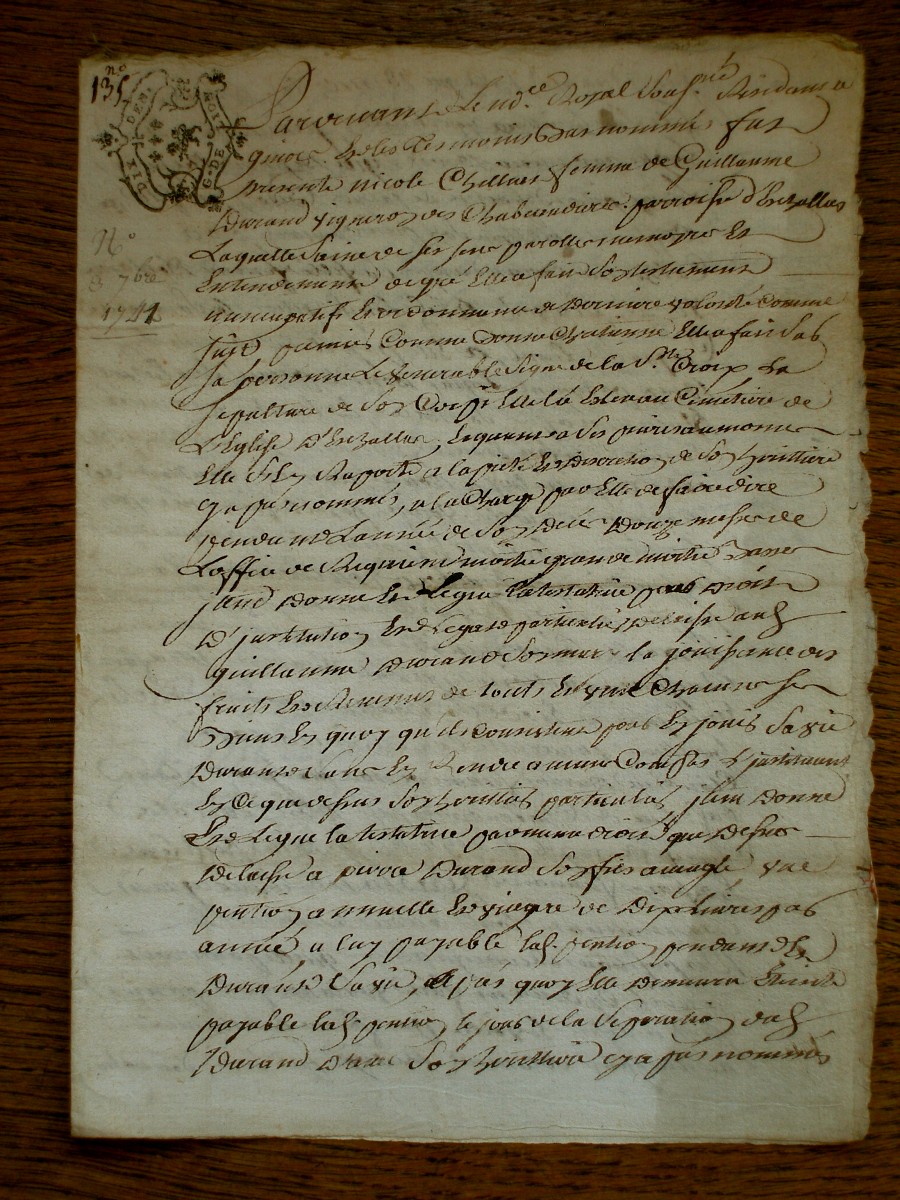 135
no
DIX DEN. G. DE
Pardevant Le nore Royal Sousné Residant a
et les Tesmoins bas nommés fut
presente nicole femme de Guillaume
Durand vigneron des parroisse d'Echallas
Laquelle Saine de ses sens parolles memoyre Et
Entendement de gré Elle a fait Son testament
nuncupatif Et ordonnance de Derniere volonté Comme
No
3 7bre
1741
Suye premier Comme bonne Chretienne Elle a fait Sub
Sa personne Le venerable Signe de la Ste Croix La
sepulture de Son Corps Elle l'a Esleu au Cimetiere de
L'Eglise D'Echallas, Et quand a Ses prieres aumones
Elle S'en Raporte a la pieté Et Discretion de Son heritiere
cy apres nommés, a la Charge par Elle de faire dire
pendant L'année de Son Decés Douze messes de
L'office de Requiem moitié grande moitié basse
Donne Et Legue La testatrice par Droit
D'institution Et Legat particulier Delaisse aud
guillaume Durand Son mary la jouissance des
fruits Et Revenus de touts Et un Chacun Ses
biens En quoy qu'ils Consistent pour En jouir Sa vie
Durant Sans En Rendre aucun Compte L'instituant
En Ce que dessus Son heritier particulier, jtem Donne
Et Legue la testatrice par meme droit que Dessus
Delaisse a pierre Durand Son fils aveugle une
pention annuelle Et viagere de Dix Livres par
année a luy payable lad. pention pendant Et
Durant Sa vie, Apres quoy Elle Demeurera Eteinte
payable lad. pention le jour de la Separation dud
Durand Avec Son heritiere cy apres nommés